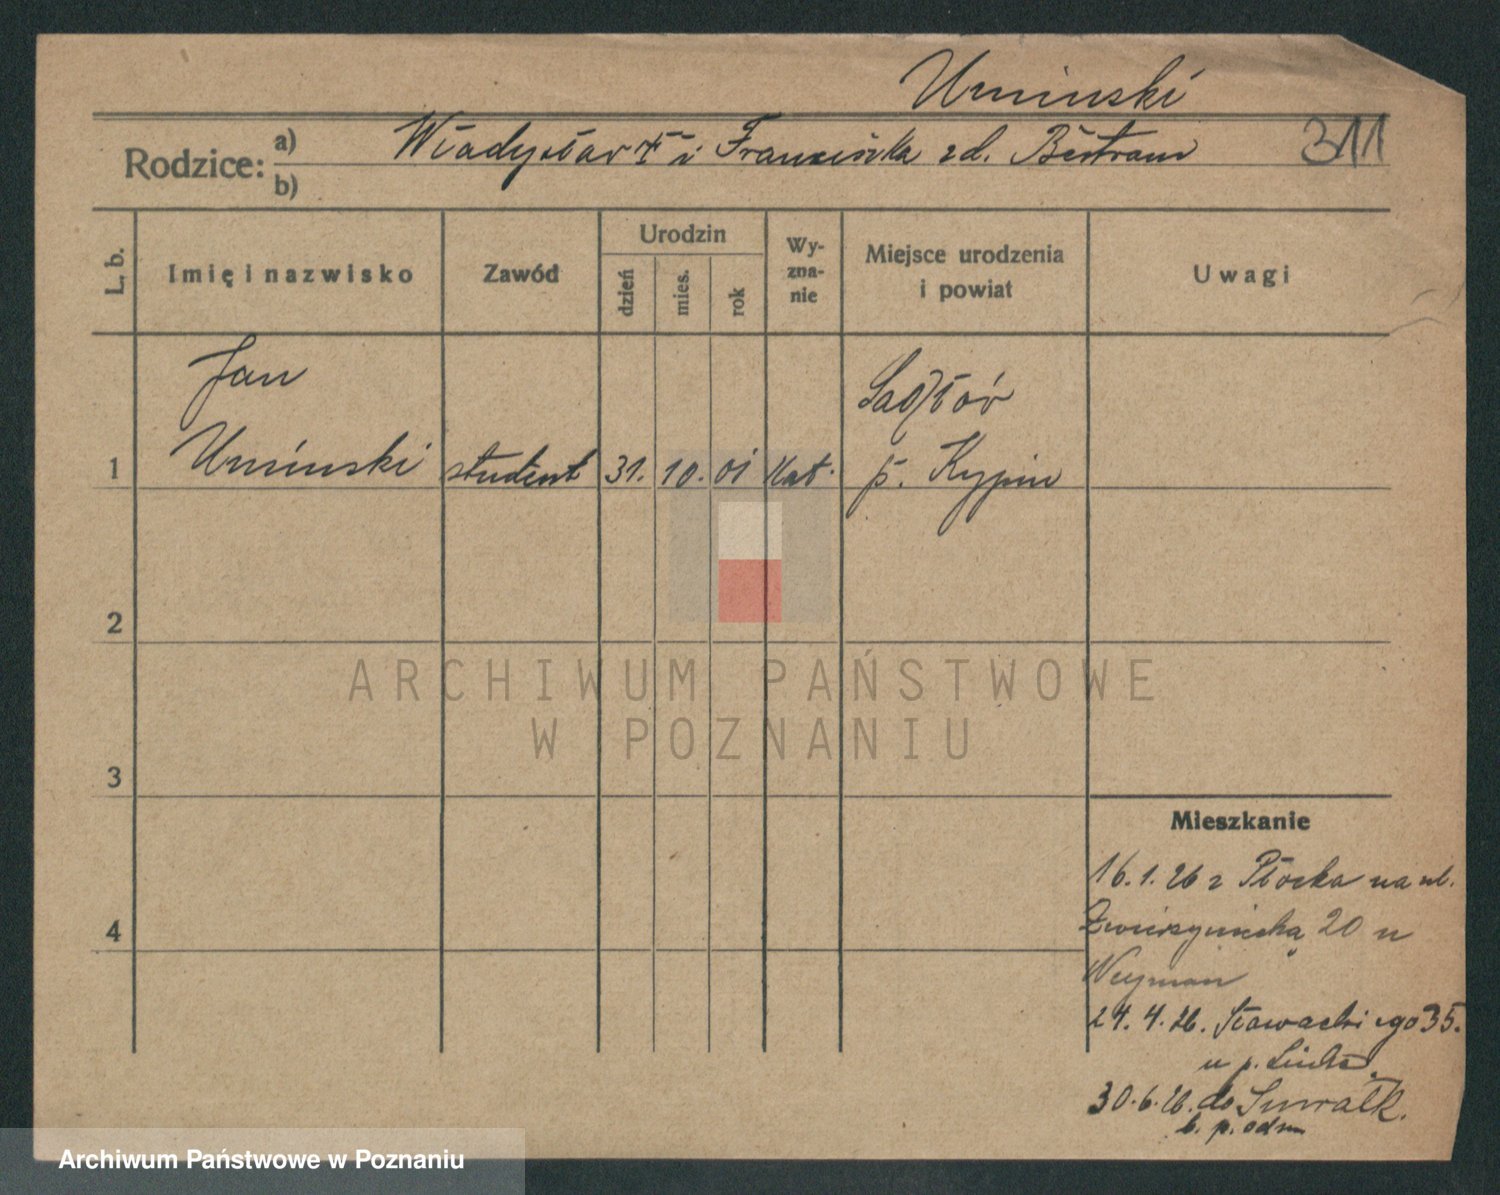 Uminski
311
Rodzice: a) Władysław i Franciszka zd. Bertram
b)
L. b.
Imię i nazwisko
Zawód
Urodzin
dzień
mies.
rok
Wy-
zna-
nie
Miejsce urodzenia
i powiat
Uwagi
Jan
1 Uminski student 31. 10. 01 Kat.
p. Rypin
2
3
4
ARCHIWUM PAŃSTWOWE
W POZNANIU
Mieszkanie
16.1.26 z Płocka na ul.
Zwierzyniecką 20 u
Weyman
24.4.26. Słowackiego 35.
u p.
30.6.26. do Suwałk.
b. p. odm
Archiwum Państwowe w Poznaniu